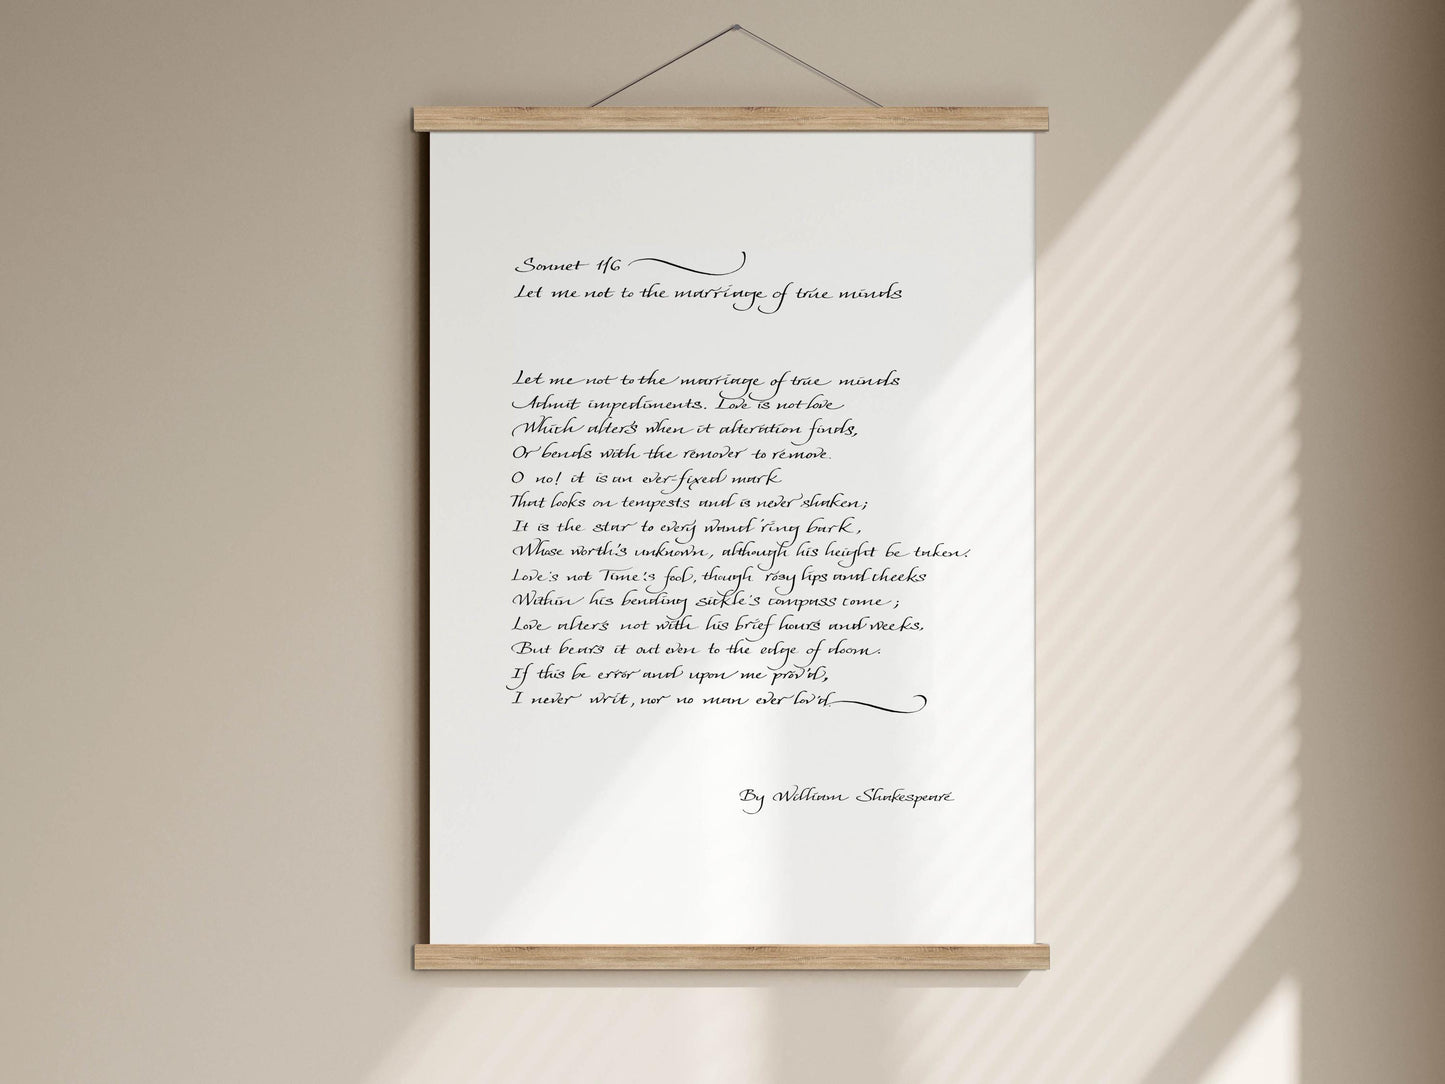 Sonnet 116
Let me not to the marriage of true minds
Let me not to the marriage of true minds
Admit impediments. Love is not love
Which alters when it alteration finds,
Or bends with the remover to remove.
O no! it is an ever-fixed mark
That looks on tempests and is never shaken;
It is the star to every wand'ring bark,
Whose worth's unknown, although his height be taken.
Love's not Time's fool, though rosy lips and cheeks
Within his bending sickle's compass come;
Love alters not with his brief hours and weeks,
But bears it out even to the edge of doom.
If this be error and upon me prov'd,
I never writ, nor no man ever lov'd.
By William Shakespeare